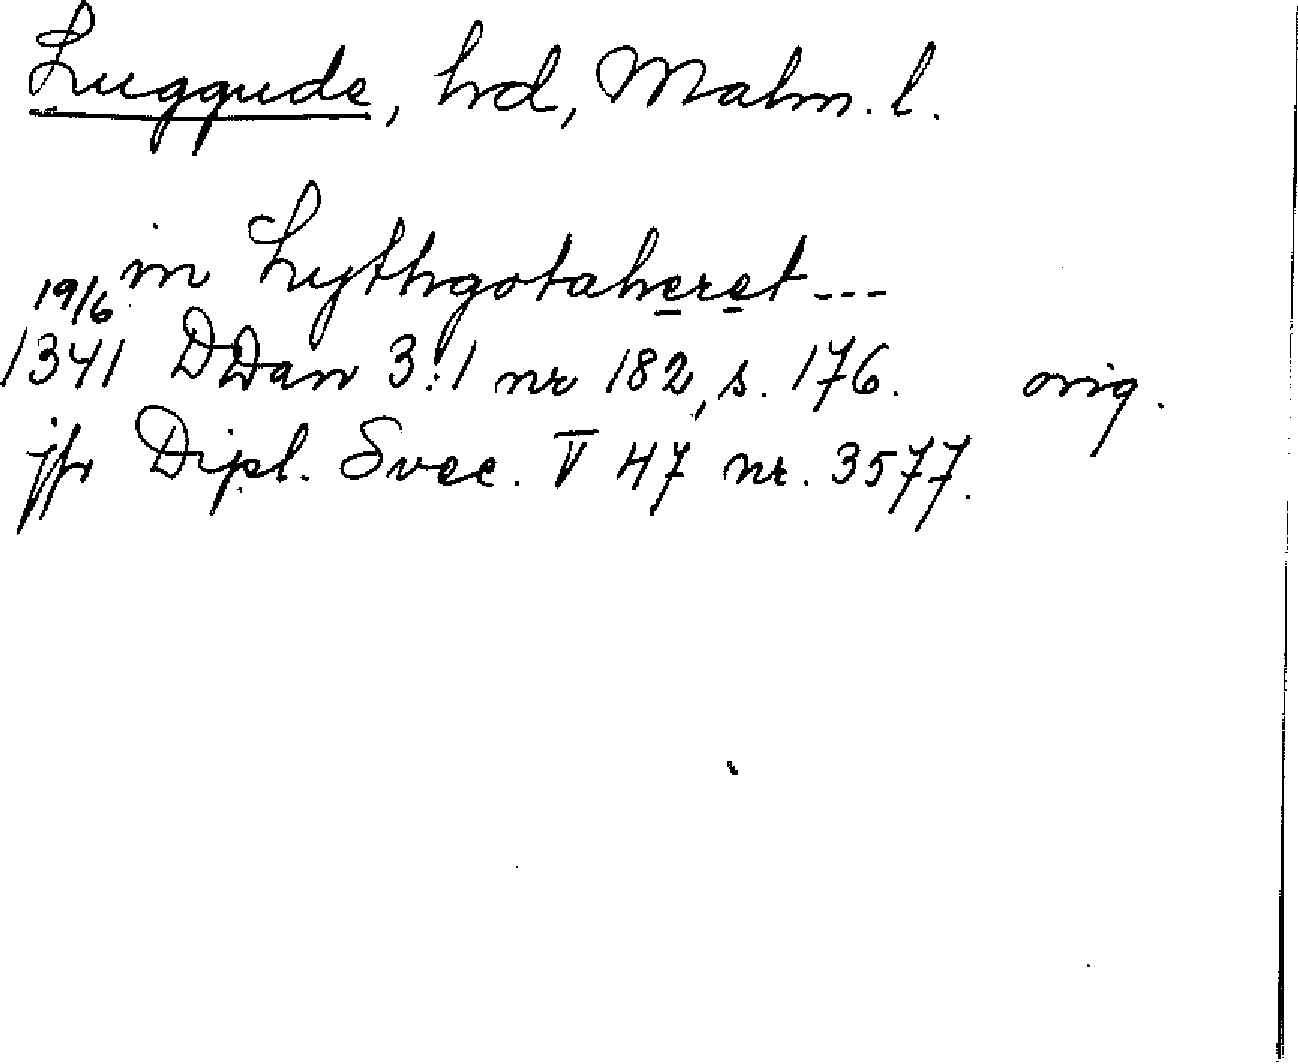 Luggude, hrd, Malm. l.
in Lythgotaheret ---
19/6
1341 DDan 3:1 nr 182, s. 176. orig.
jfr Dipl. Svec. V 47 nr. 3577.